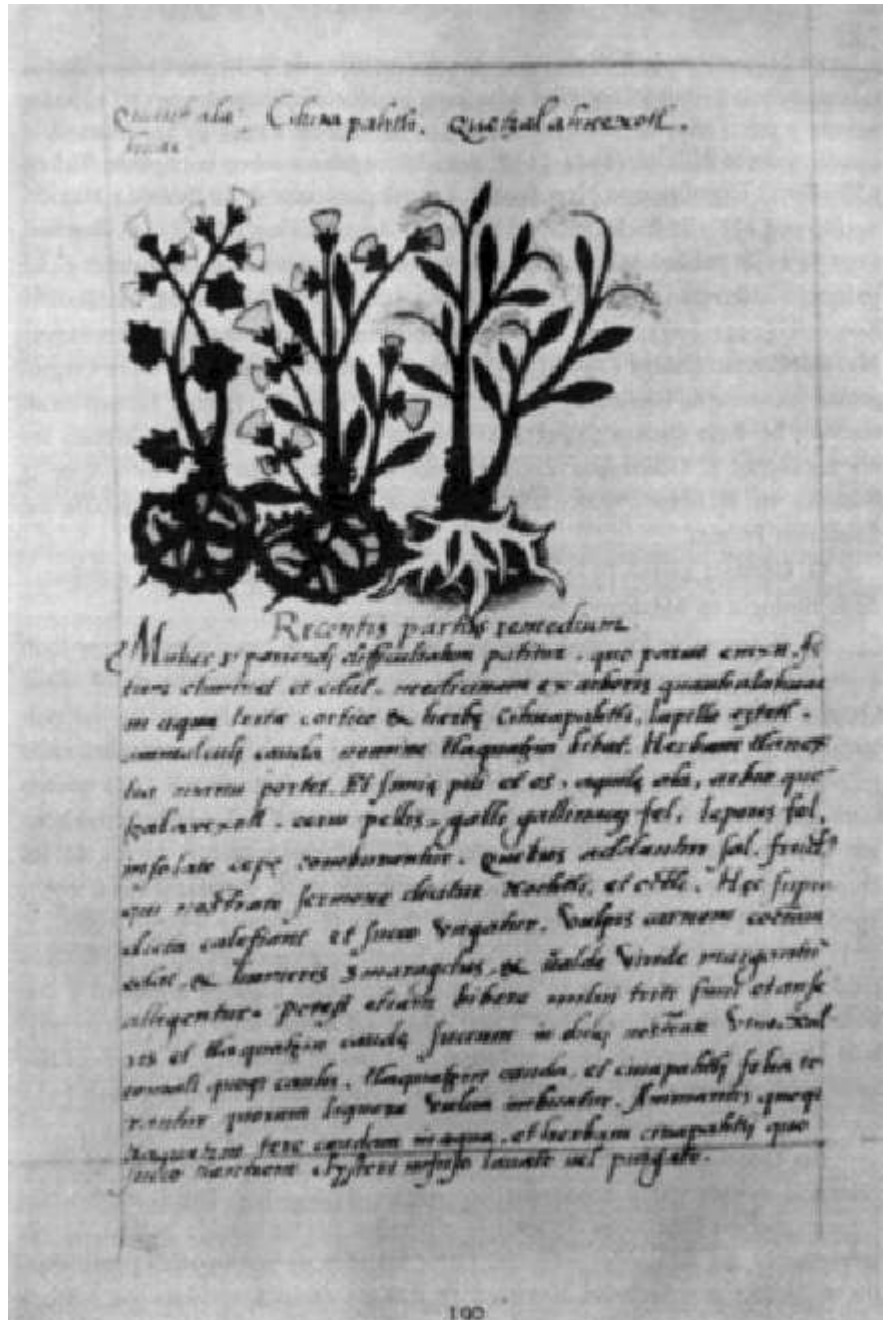 Cihuapahtli. Quetzal ahuexotl.
Recentis partus remedium.
Mulier pariendi difficultatem patitur. quo
et edat. medicinam ex arboris quauhalahuac
in aqua tritæ cortice & herbę Cihuapahtli, lapillo eztetl.
animalculi cauda nomine tlaquatzin bibat. Herbam tlanex
tia manu portet. Et simię pili et os, aquilę ala, arbor que
tzalaxexotl. cerui pellis, galli gallinacij fel, leporis fel,
insolate cepę comburentur. Quibus adduntur sal, fruct9
qui nostrate sermone dicitur Nochtli, et octli. Hęc supra
dicta calefiant et succo Vngatur. Vulpis carnem coctam
edat, & humeris smaragdus, & valde viride
alligentur. Potest etiam bibere milui triti fimi et anse
ris et tlaquatzin caudę succum in dulci vino. Xal
tomatl quoq caulis, tlaquatzin cauda, et cihuapahtli folia te
rantur quorum liquore vulva imbuatur. Animantis quoq
tlaquatzin tere caudam in aqua, et herbam cihuapahtli quo
succo ventrem clysteri infuso lauate uel purgate.
190